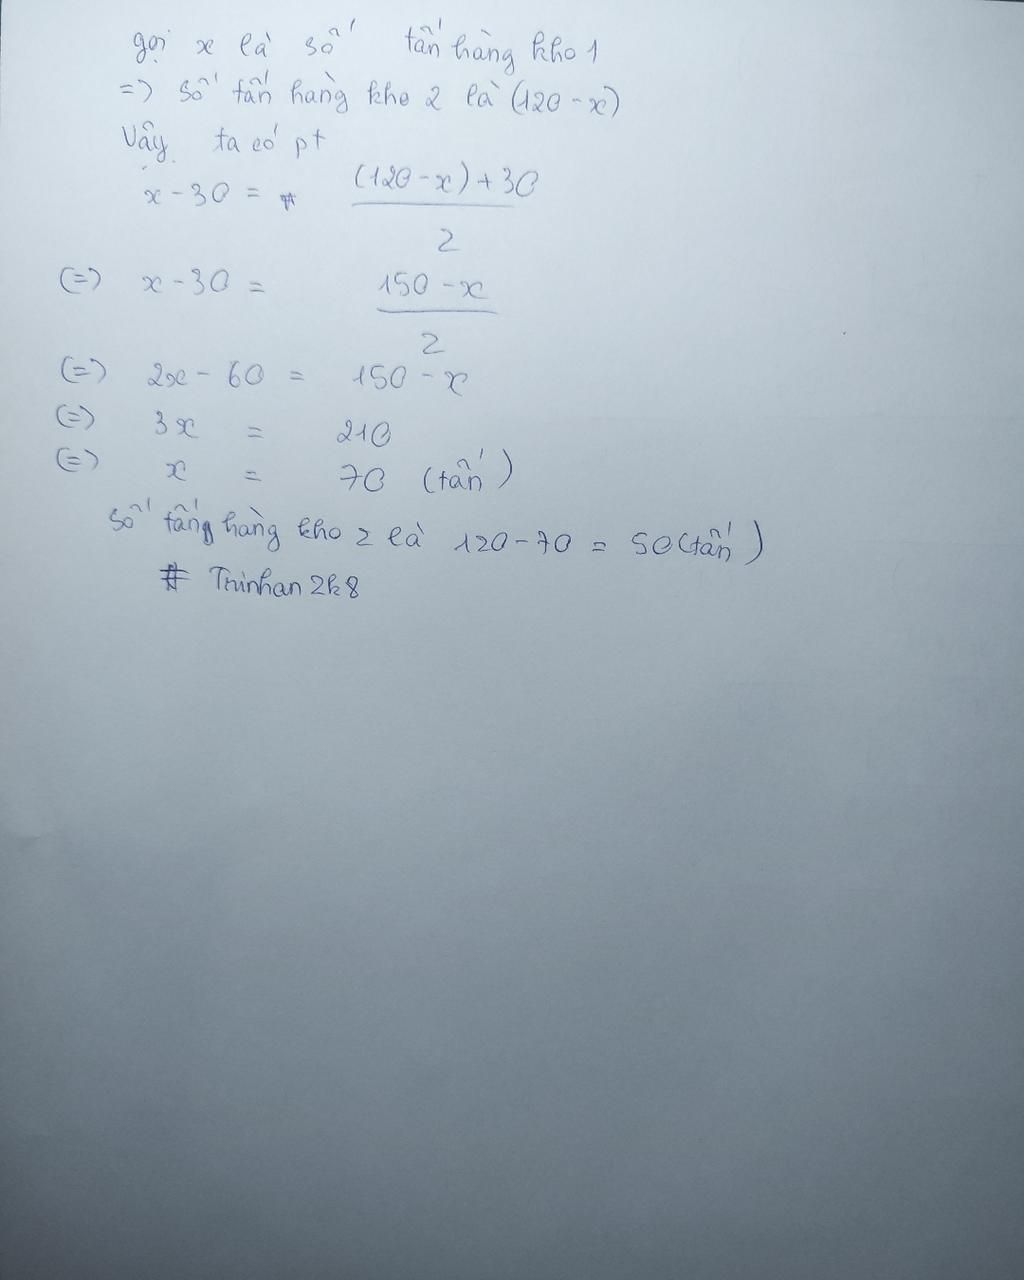 gọi x là số tấn hàng kho 1
=> số tấn hàng kho 2 là (120 - x)
Vậy ta có pt
x - 30 = ((120 - x) + 30)/2
(=) x - 30 = (150 - x)/2
(=) 2x - 60 = 150 - x
(=) 3x = 210
(=) x = 70 (tấn)
số tấng hàng kho 2 là 120 - 70 = 50 (tấn)
# Trinhan2k8